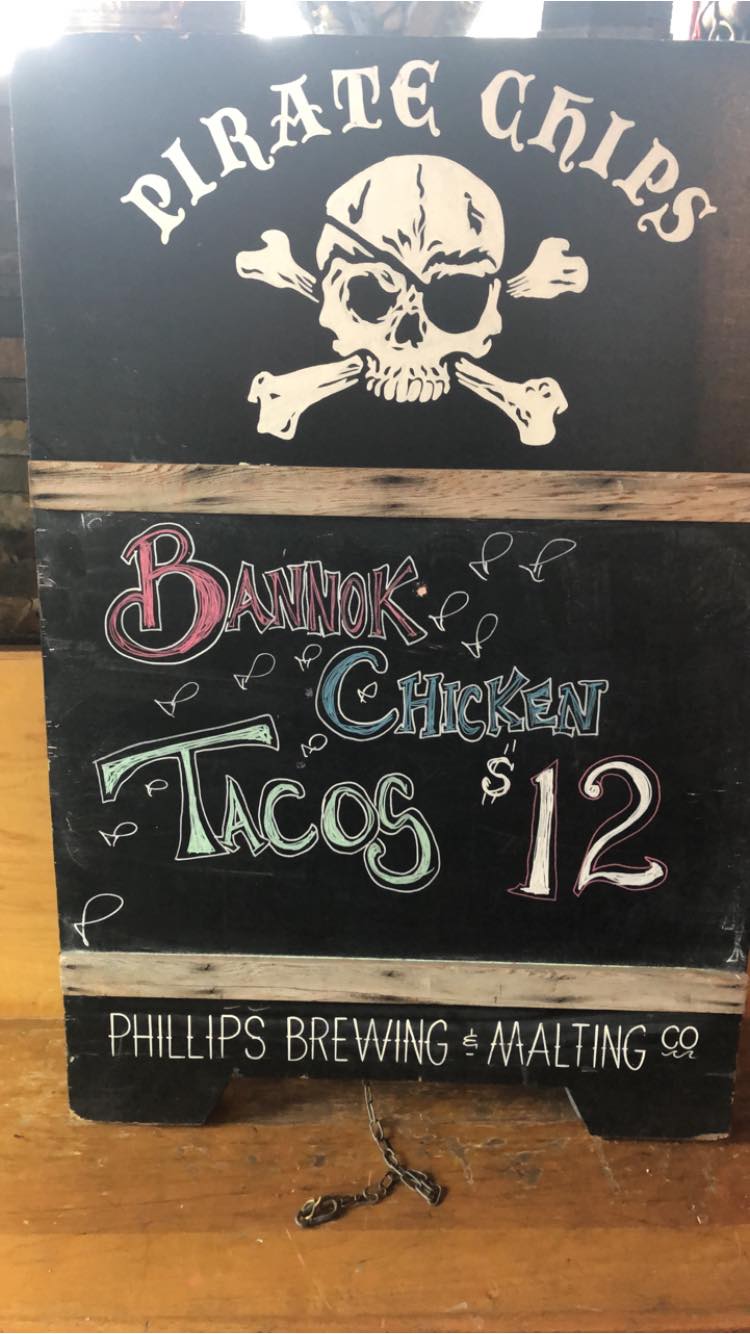 PIRATE CHIPS
BANNOK
CHICKEN
TACOS $12
PHILLIPS BREWING & MALTING CO